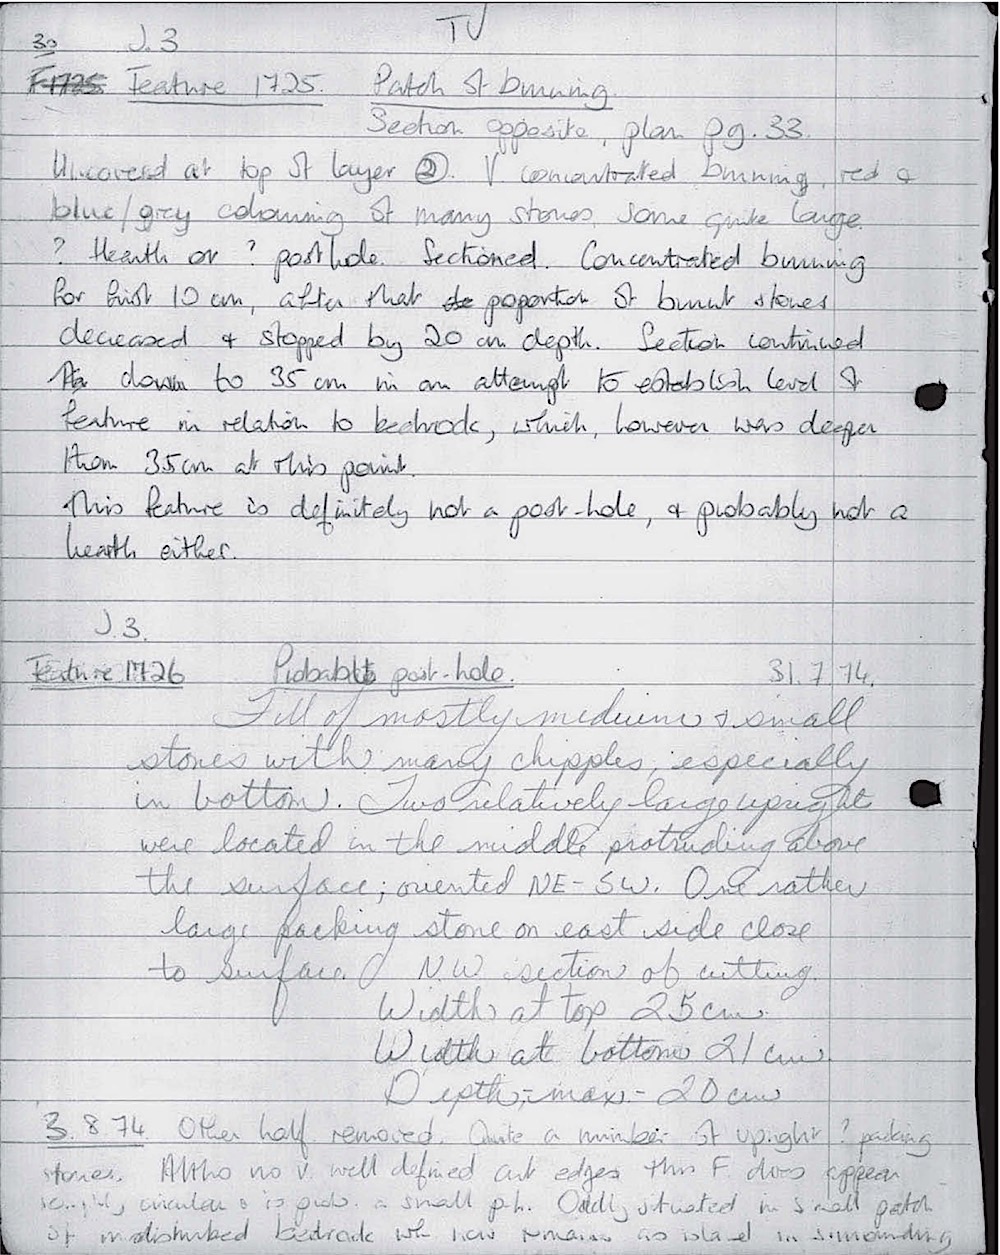 TV
30 J.3
F1725 Feature 1725. Patch of burning
Section opposite, plan pg. 33.
Uncovered at top of layer ②. V concentrated burning, red &
blue/grey colouring of many stones, some quite large.
? Hearth or ? posthole. Sectioned. Concentrated burning
for first 10 cm, after that poportion of burnt stones
decreased & stopped by 20 cm depth. Section continued
down to 35 cm in an attempt to establish level of
feature in relation to bedrock, which, however was deeper
than 35cm at this point.
This feature is definitely not a post-hole, & probably not a
hearth either.
J.3.
Feature 1726 Probable post-hole. 31.7.74.
Fill of mostly medium & small
stones with many chipples, especially
in bottom. Two relatively large upright
were located in the middle protruding above
the surface; oriented NE-SW. One rather
large packing stone on east side close
to surface. NW section of cutting.
Width at top 25cm.
Width at bottom 21cm.
Depth, max. - 20cm
3.8.74. Other half removed. Quite a number of upright ? packing
stones. Altho no v. well defined cut edges this F. does appear
roughly circular & is prob. a small p.h. Oddly situated in small patch
of undisturbed bedrock wh now remains as island in surrounding